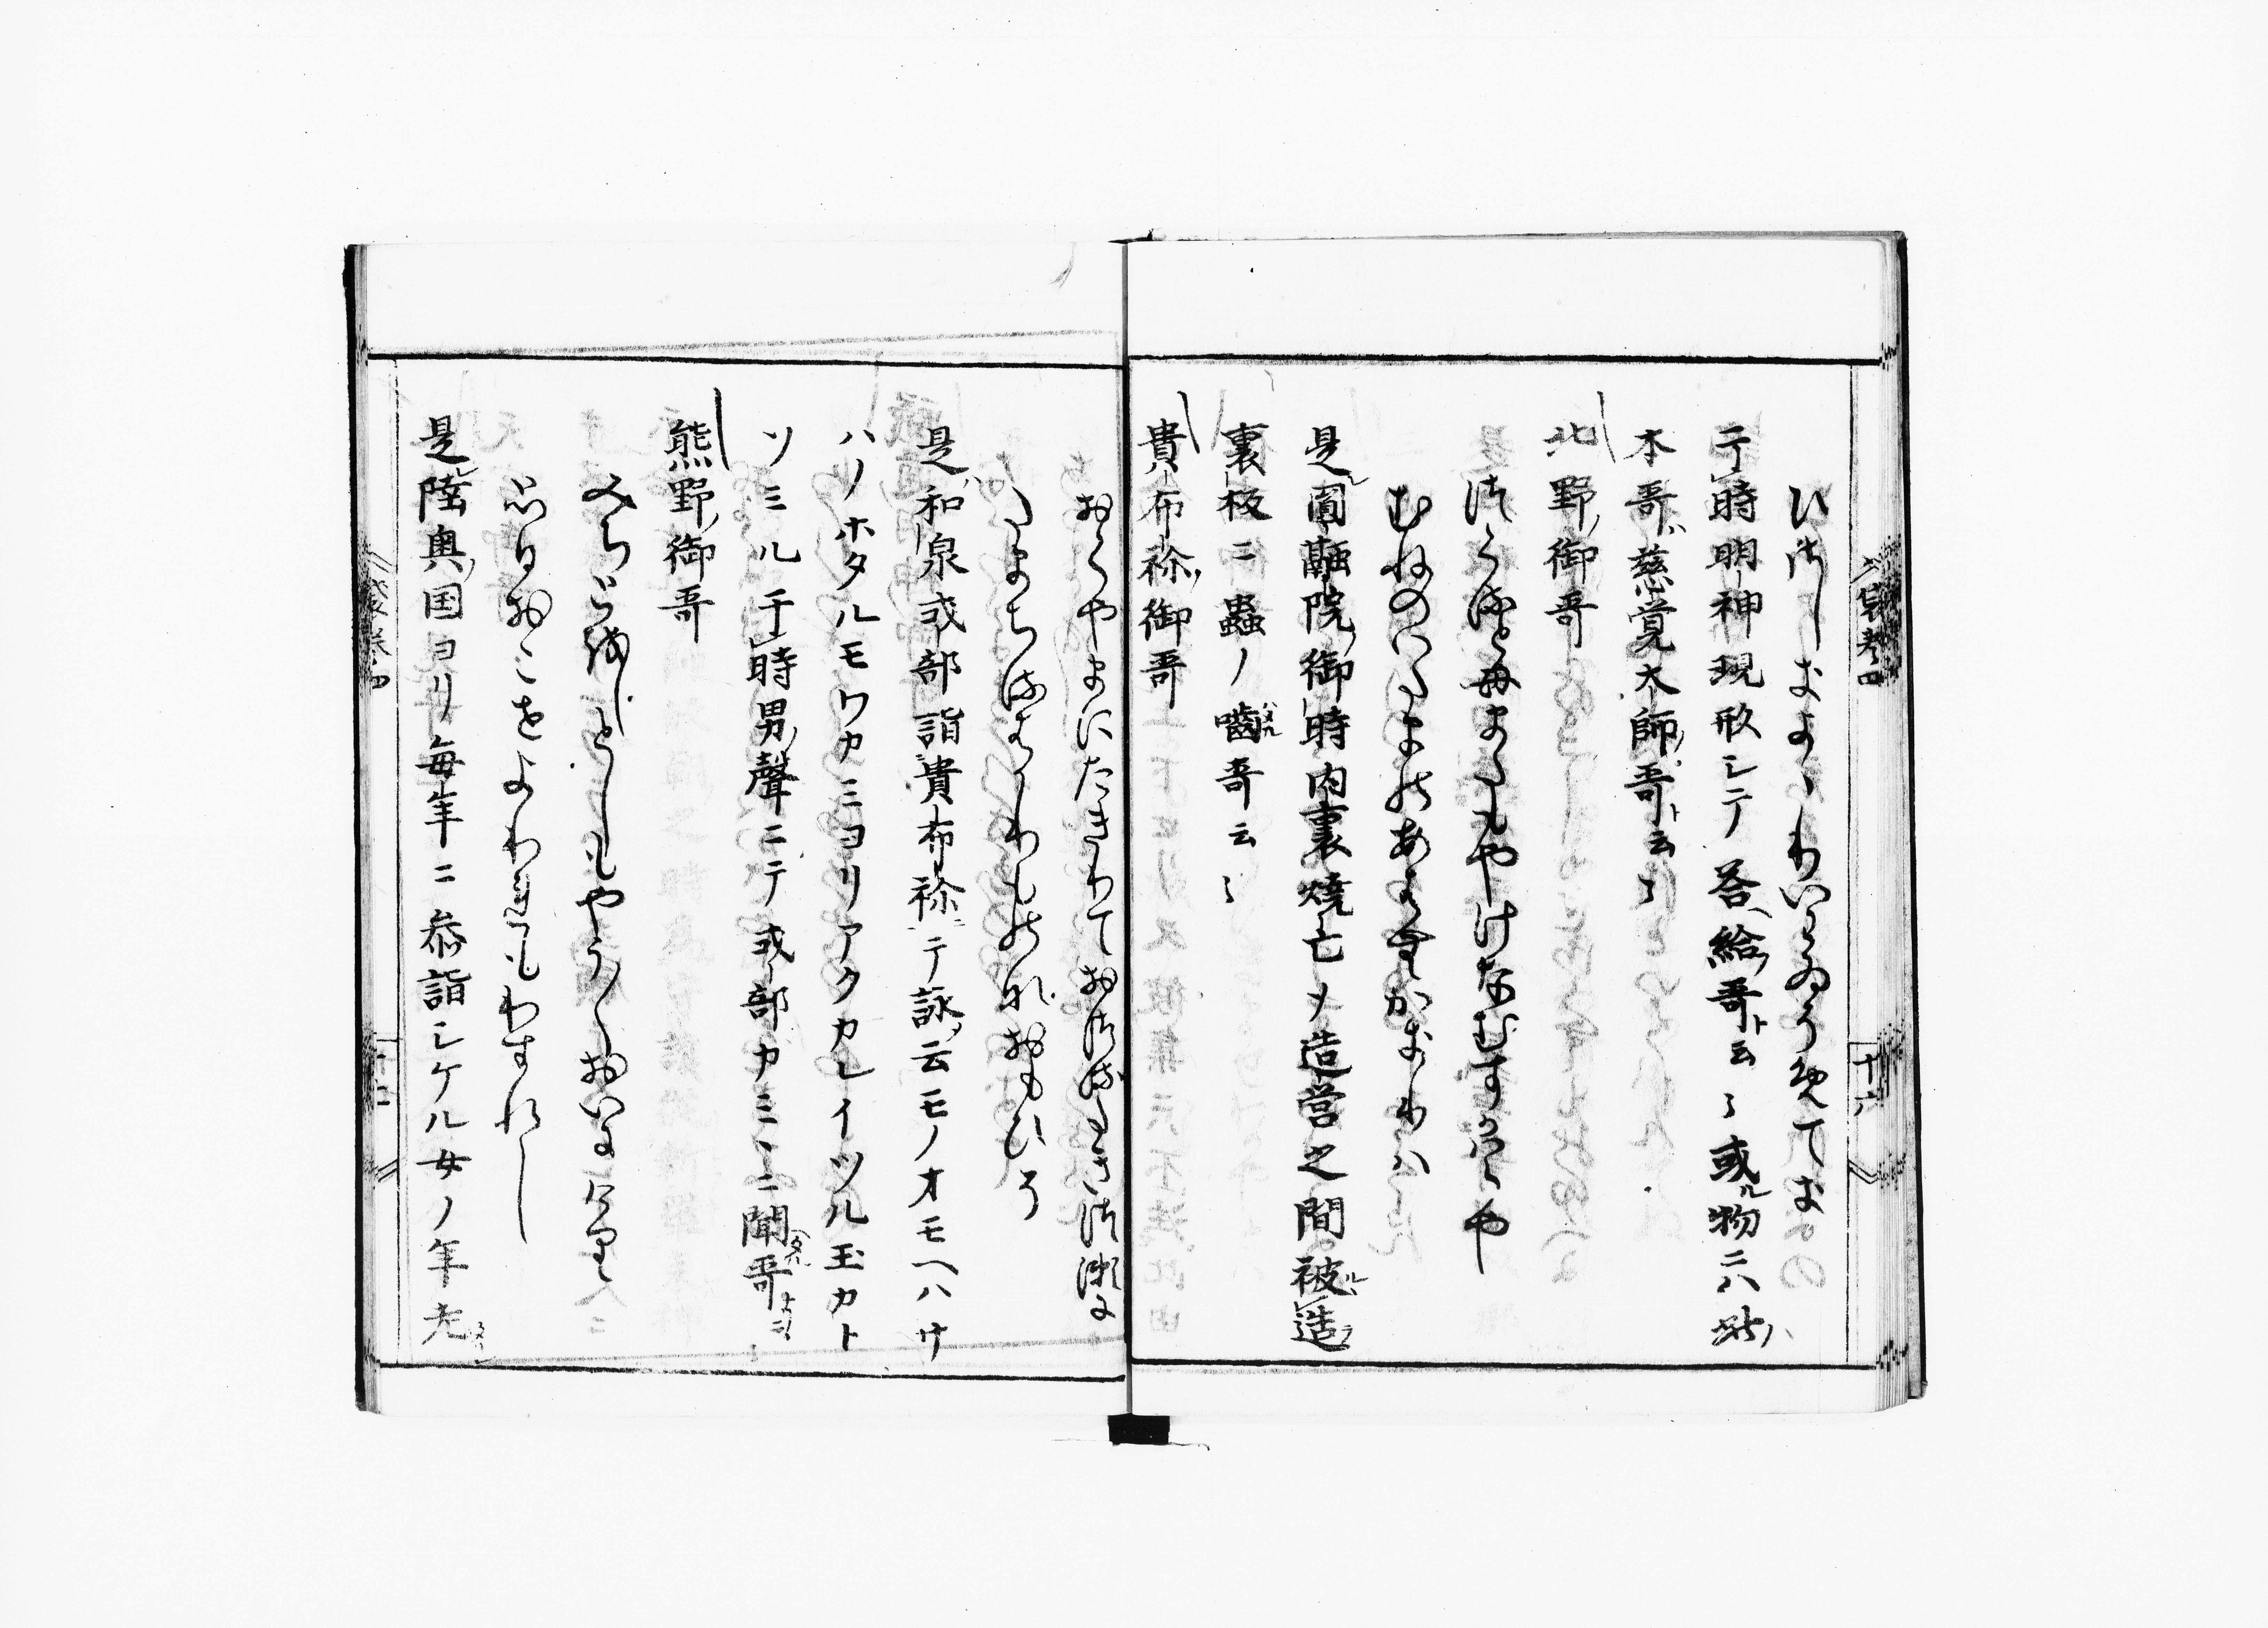 ひさしきよゝりいはゐそめてき
于時明神現形シテ答給哥ト云〻或ル物ニハ此ノ
本哥ハ慈覚大師ノ哥ト云〻
北野ノ御哥
つくるともまたもやけなむすかはらや
むねのいたまのあはぬかきりハ
是圓融院ノ御時内裏焼亡ノ造営之間被造
裏板ニ蟲ノ噛哥云〻
貴布祢ノ御哥
おくやまにたきりておつるたきつ瀬に
たまちるはかりものなおもひそ
是ハ和泉式部詣貴布祢ニテ詠云モノオモヘハサ
ハノホタルモワカミヨリアクカレイツル玉カト
ソミル于時男ノ聲ニテ式部カミヽニ聞哥
熊野ノ御哥
みちとをしとしもやう〳〵おいにけり
思ひおこせよわれもわすれし
是陸奥ノ国ヨリ毎年ニ参詣シケル女ノ年老
袋巻四
十六